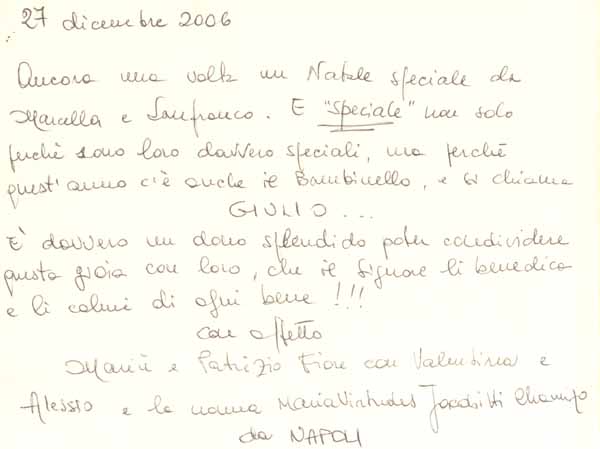 27 dicembre 2006
Ancora una volta un Natale speciale da
Marcella e Lanfranco. E "speciale" non solo
perchè sono loro davvero speciali, ma perchè
quest'anno c'è anche il Bambinello, e si chiama
GIULIO...
E' davvero un dono splendido poter condividere
questa gioia con loro, che il Signore li benedica
e li colmi di ogni bene!!!
con affetto
Mariù e Patrizio Fiore con Valentina e
Alessio e la nonna Maria Virtudes
da NAPOLI